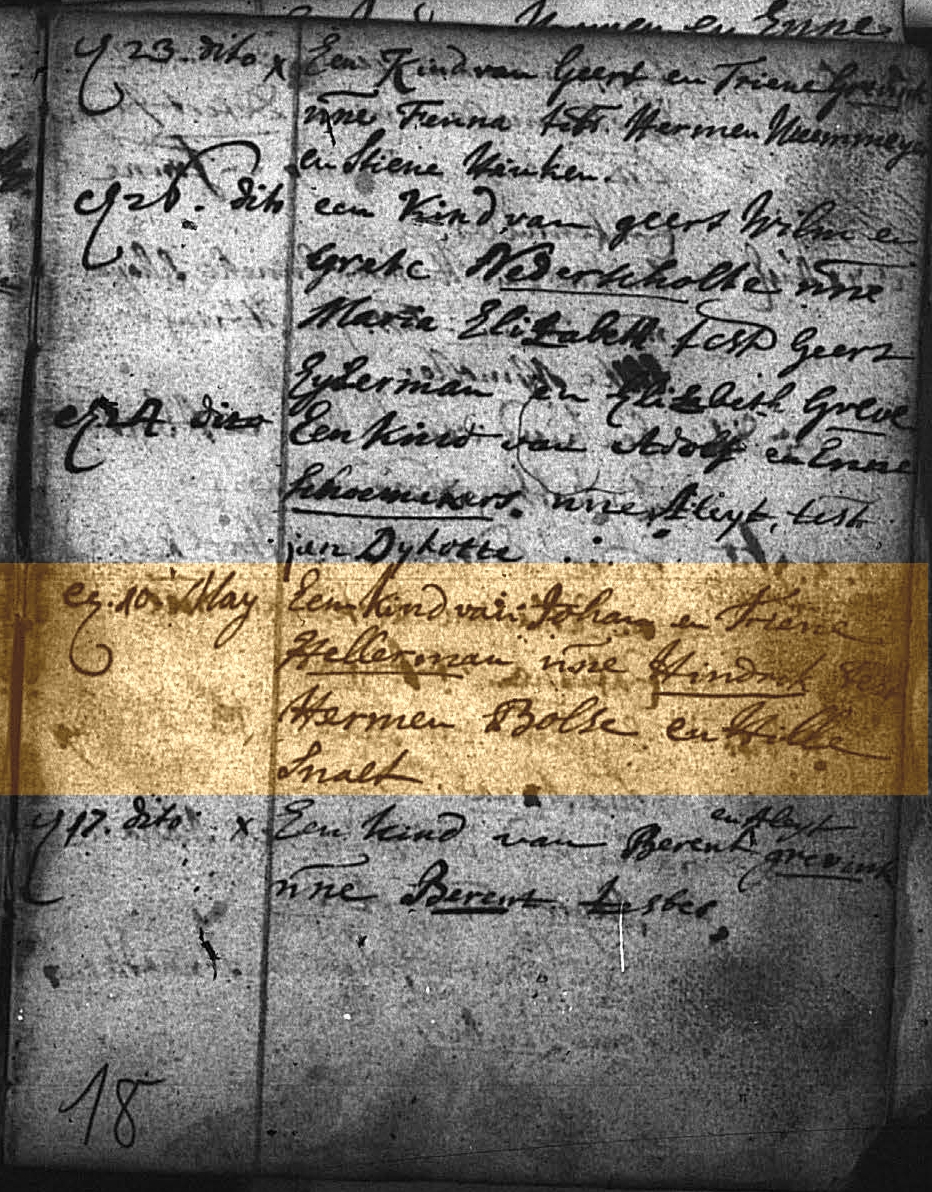 en Enne
23. dito x Een Kind van Geert en Triene Grevink
nne Fenna test. Hermen
en Stiene
dito een Kind van geert Wilm en
Grete Nederscholte nne
Maria Elizabeth test Geert
Eyterman en Elizabeth Greve
dito Een Kind van Adolf en Enne
Schoemakers. nne Aleyt, test
jan Dykotte
10. May Een Kind van Johan en Triene
Hellerman nne Hindrik test
Hermen Bolse en Hille
Snaet
en Aleyt
17. dito x Een kind van Berent grevink
nne Berent testes
18